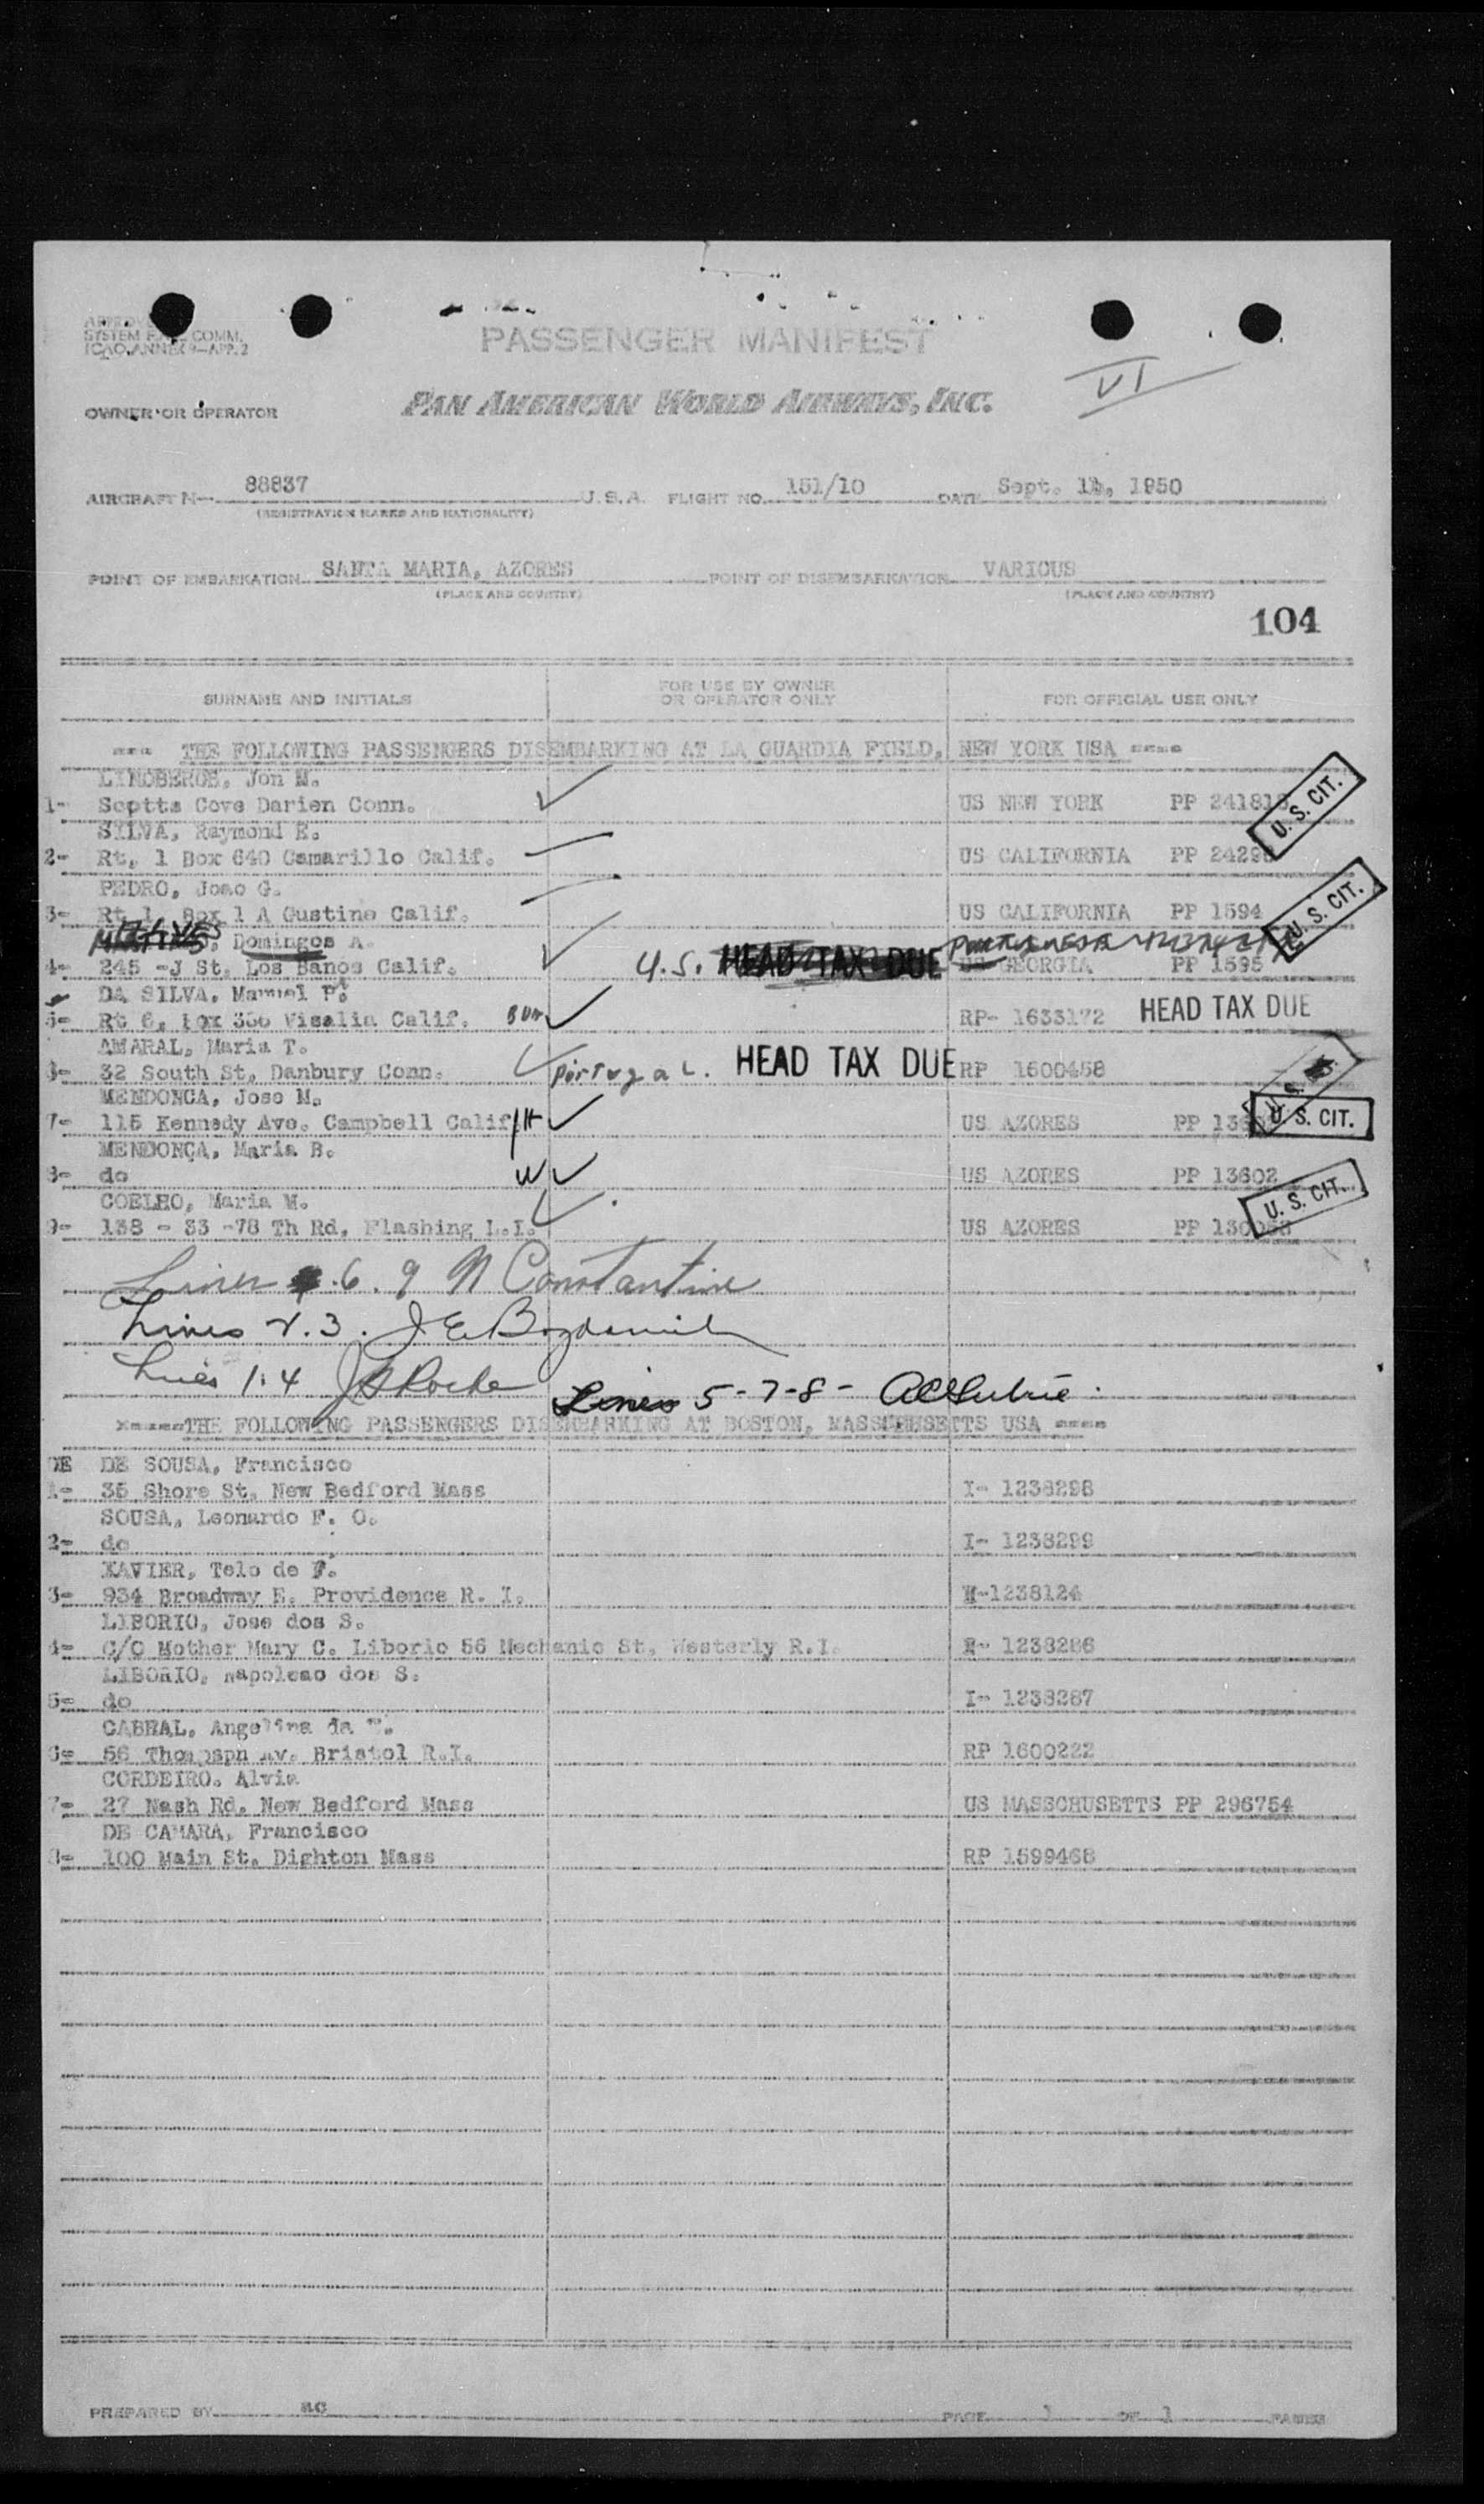 SYSTEM COMM.
ICAO ANNEX 9-APP. 2
PASSENGER MANIFEST
VI
OWNER OR OPERATOR PAN AMERICAN WORLD AIRWAYS, INC.
AIRCRAFT N- 88837 U.S.A. FLIGHT NO. 151/10 DATE Sept. 11, 1950
(REGISTRATION MARKS AND NATIONALITY)
POINT OF EMBARKATION SANTA MARIA, AZORES POINT OF DISEMBARKATION VARIOUS
(PLACE AND COUNTRY) (PLACE AND COUNTRY)
104
SURNAME AND INITIALS FOR USE BY OWNER OR OPERATOR ONLY FOR OFFICIAL USE ONLY
--- THE FOLLOWING PASSENGERS DISEMBARKING AT LA GUARDIA FIELD, NEW YORK USA ----
Jon M.
1- Scptts Cove Darien Conn. US NEW YORK PP 241818 U. S. CIT.
SILVA, Raymond E.
2- Rt. 1 Box 640 Camarillo Calif. US CALIFORNIA PP 24298
PEDRO, Joao G.
3- Rt 1 Box 1 A Gustine Calif. US CALIFORNIA PP 1594 U. S. CIT.
Domingos A.
4- 245 -J St. Los Banos Calif. U.S. HEAD TAX DUE US GEORGIA PP 1595
DA SILVA, Manuel P.
5- Rt 6, Box 356 Visalia Calif. RP- 1633172 HEAD TAX DUE
AMARAL, Maria T.
6- 32 South St, Danbury Conn. Portugal. HEAD TAX DUE RP 1600458
MENDONCA, Jose M.
7- 115 Kennedy Ave. Campbell Calif H US AZORES PP U. S. CIT.
MENDONÇA, Maria B.
8- do W US AZORES PP 13602
COELHO, Maria M.
9- 138 - 33 -78 Th Rd, Flashing L.I. US AZORES PP U. S. CIT.
Lines 6. 9 N Constantine
Lines 2.3. J E
Lines 1.4 Roche Lines 5-7-8-
-----THE FOLLOWING PASSENGERS DISEMBARKING AT BOSTON, MASSCHUSETTS USA ----
DE DE SOUSA, Francisco
1- 35 Shore St, New Bedford Mass I- 1238298
SOUSA, Leonardo F. O.
2- do I- 1238299
XAVIER, Telo de F.
3- 934 Broadway E. Providence R. I. 1238124
LIBORIO, Jose dos S.
4- C/O Mother Mary C. Liborio 56 Mechanic St, Westerly R.I. 1238286
LIBORIO, Napoleao dos S.
5- do I- 1238287
CABRAL, Angelina da
6- 56 Thompspn Av. Bristol R.I. RP 1600222
CORDEIRO. Alvia
7- 27 Nash Rd. New Bedford Mass US MASSCHUSETTS PP 296754
DE CAMARA, Francisco
8- 100 Main St. Dighton Mass RP 1599468
PREPARED BY PAGE 1 OF 1 PAGES